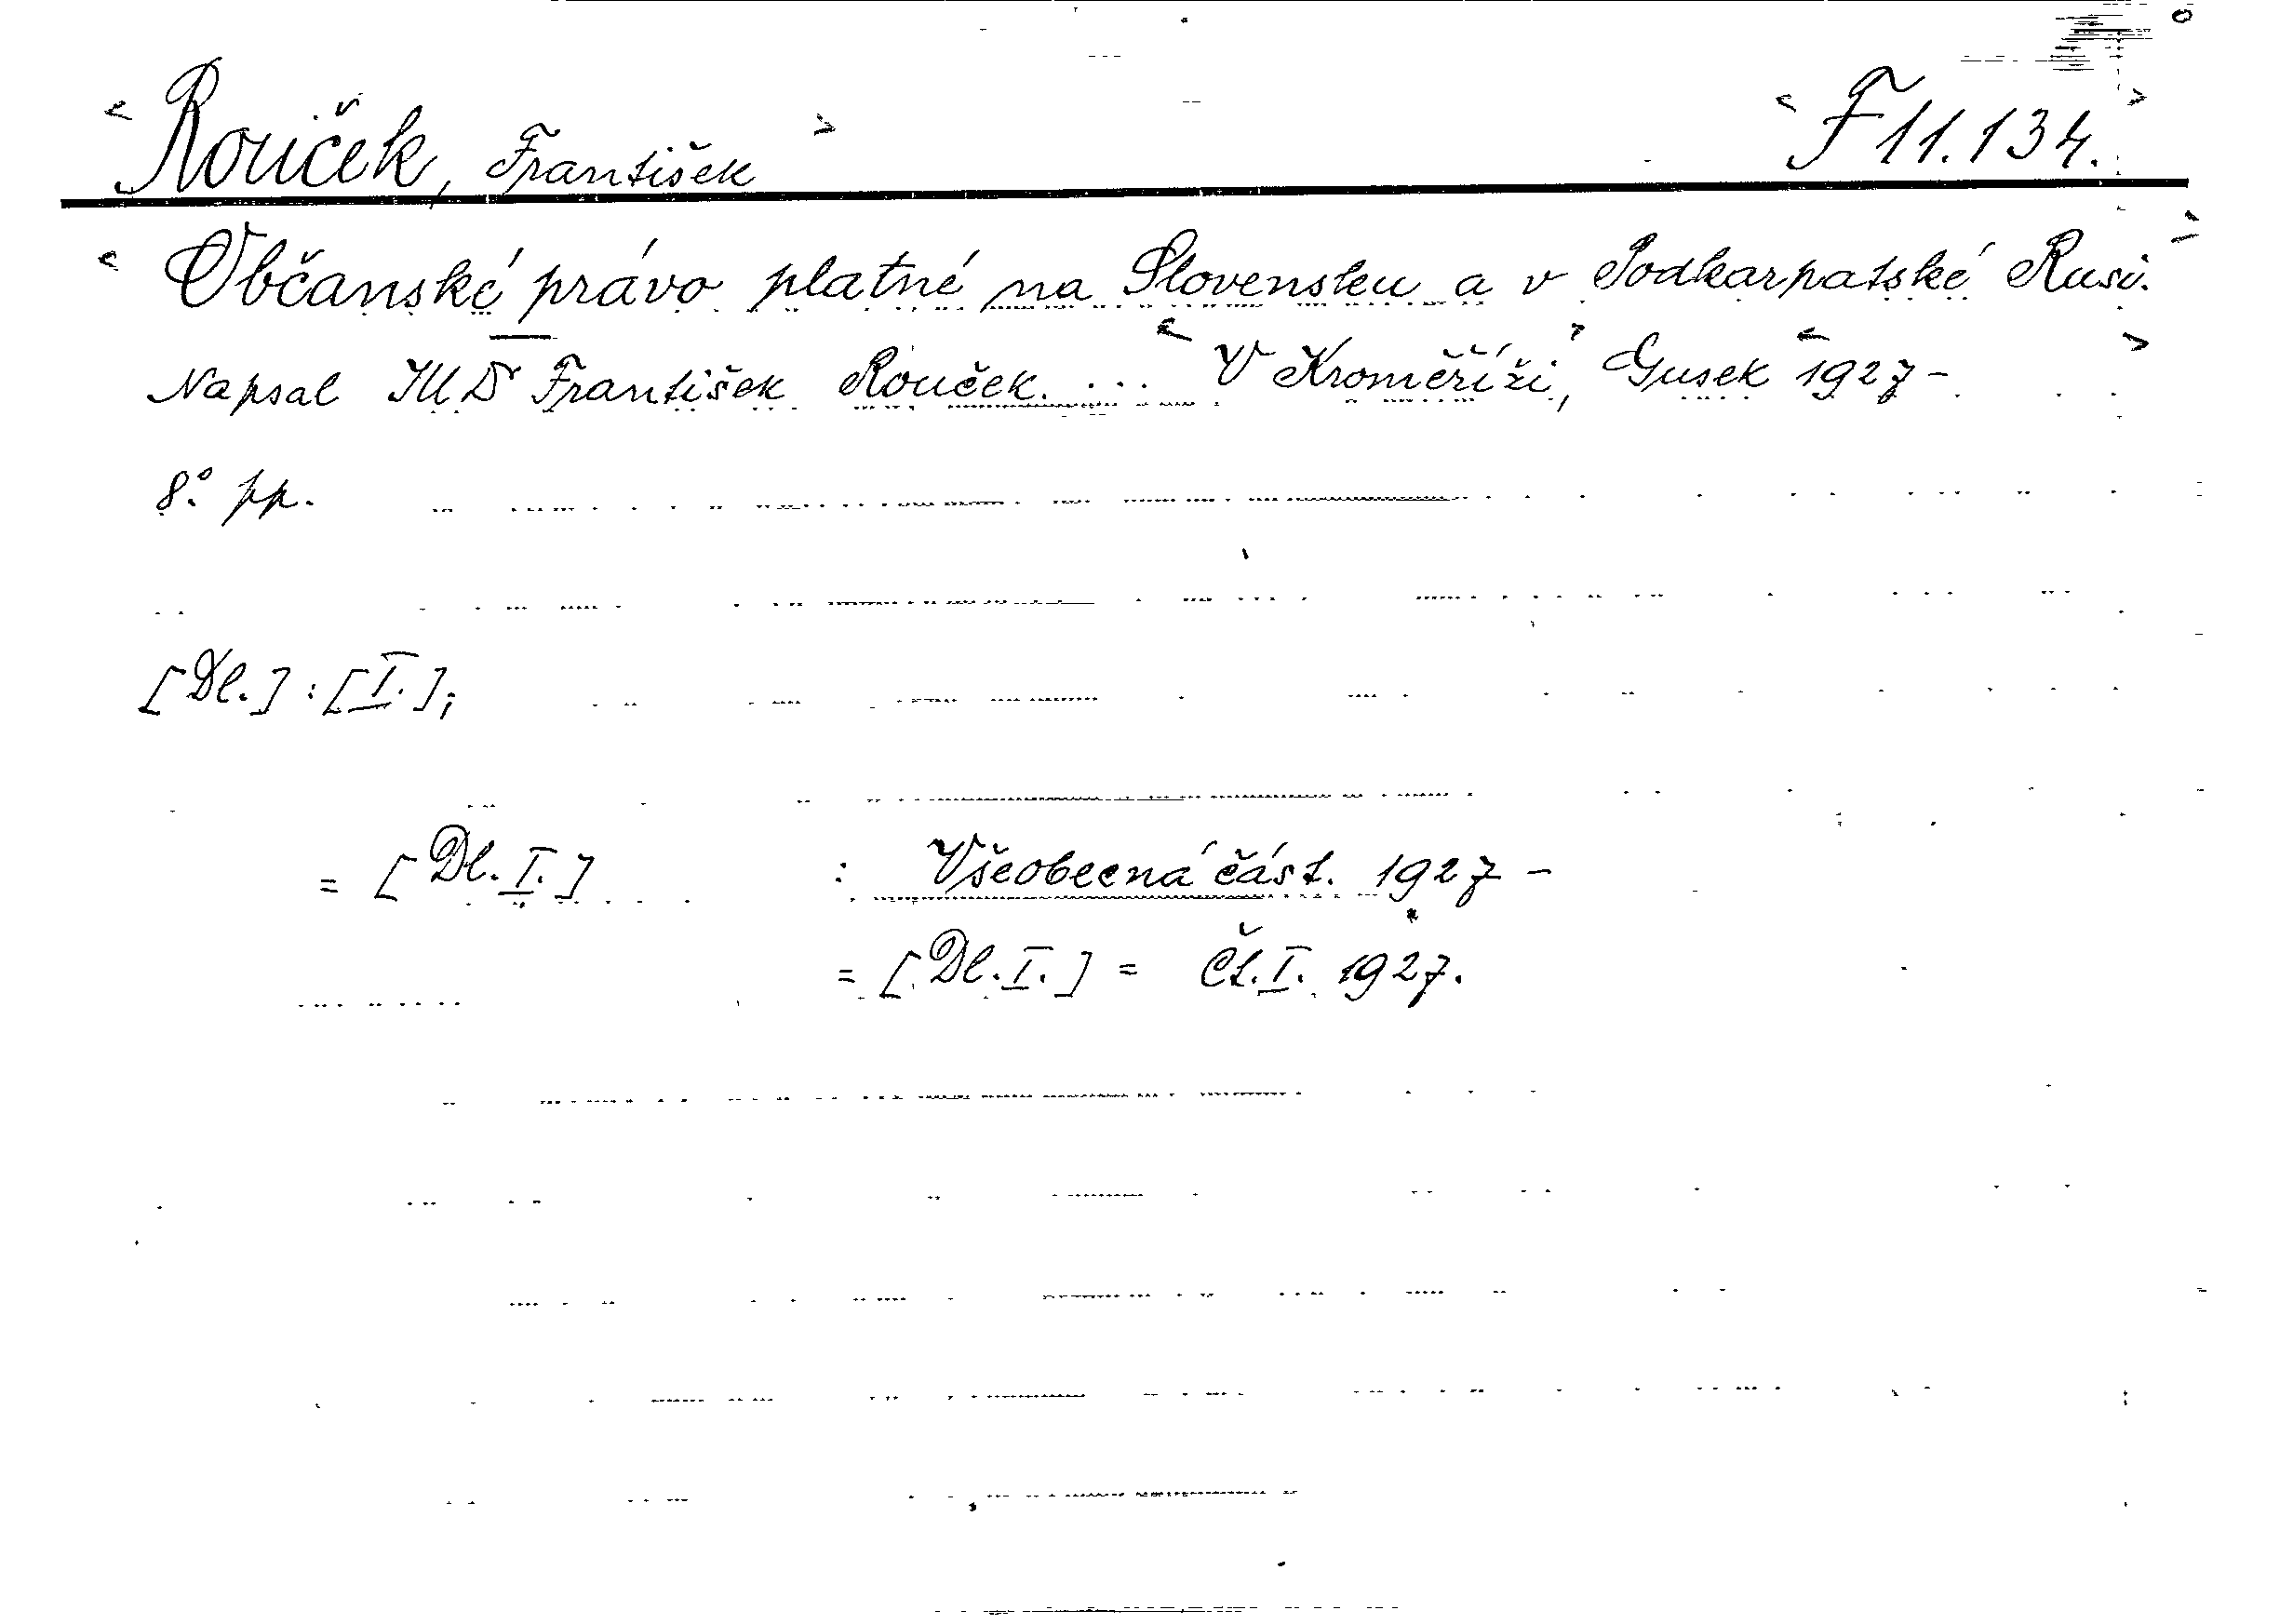 < Rouček, František > < F 11.134. >
< Občanské právo platné na Slovensku a v Podkarpatské Rusi. >
Napsal JUDr František Rouček. ... < V Kroměříži, > Gusek < 1927 - >
8.° pp.
[Dl.] : [I.];
= [Dl. I.] : Všeobecná část. 1927 -
= [Dl. I.] = Čt. I. 1927.